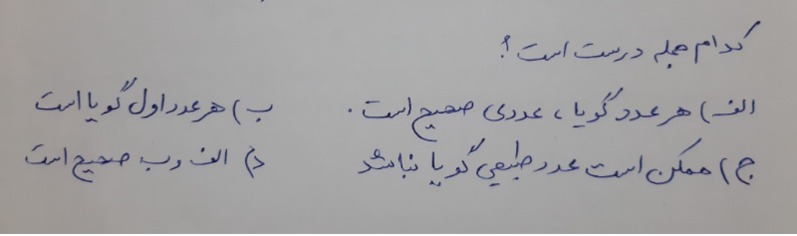 کدام جمله درست است؟
الف) هر عدد گویا، عددی صحیح است. ب) هر عدد اول گویا است
ج) ممکن است عدد طبیعی گویا نباشد د) الف و ب صحیح است